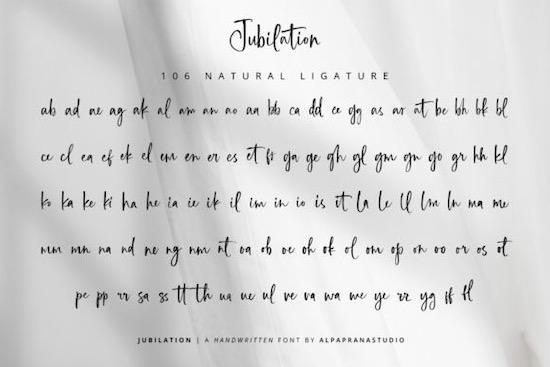 Jubilation
106 NATURAL LIGATURE
ab ad ae ag ak al am an ao aa bb ca dd ce gg as ar at be bh bk bl
ce cl ea ef ek el em en er es et fr ga ge gh gl gm gn go gr hh kl
ko ka ke ki ha he ia ie ik il im in io is it la le ll lm ln ma me
mm mn na nd ne ng nm nt oa ob oc oh ok ol om op on oo or os ot
pe pp rr sa ss tt th ua ue ul ve va wa we ye rr yg ff fl
JUBILATION | A HANDWRITTEN FONT BY ALPAPRANASTUDIO